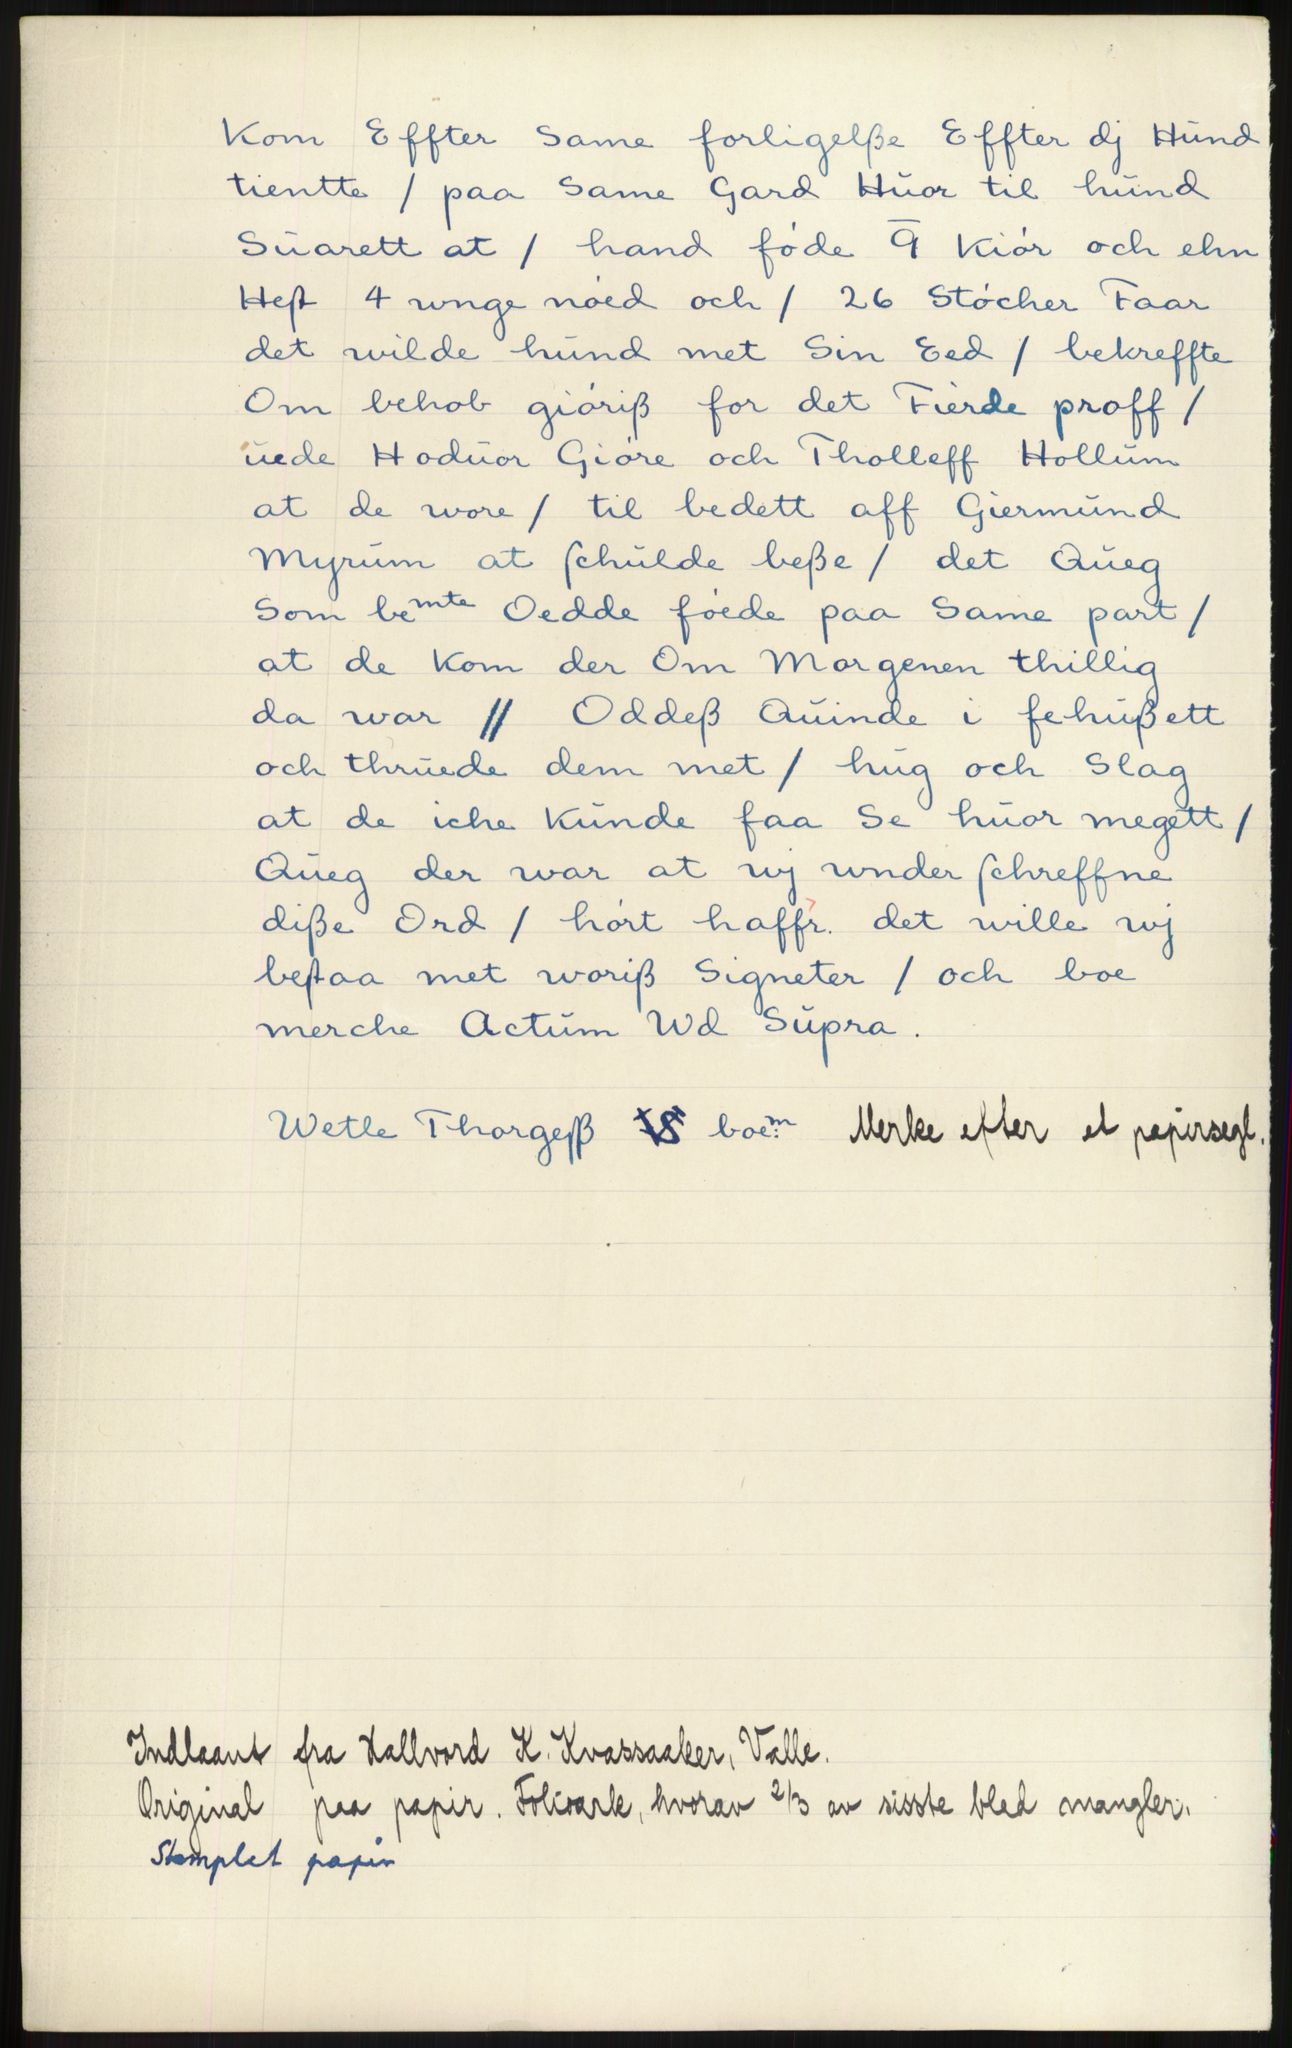 Kom Effter Same forligelße Effter dj Hŭnd
tientte / paa Same Gard Hŭor til hŭnd
Sŭarett at / hand fóde 9̄ Kiór och ehn
Hest 4 unge nóed och / 26 Stócher Faar
det wilde hŭnd met Sin Eed / bekreffte
Om behob gióriß for det Fierde proff /
ŭede Hodŭor Gióre och Tholleff Hollŭm
at de wore / til bedett aff Giermŭnd
Myrŭm at schŭlde beße / det Qŭeg
Som bemte Oedde fóede paa Same part /
at de Kom der Om Morgenen thillig
da war // Oddeß Qŭinde i fehŭßett
och thrŭede dem met / hŭg och Slag
at de iche Kŭnde faa Se hŭor megett /
Qŭeg der war at wj wnder schreffne
diße Ord / hórt haffr. det wille wj
bestaa met woriß Signeter / och boe
merche Actŭm Wd Sŭpra.
Wetle Thorgeß boem: Merke efter et papirsegl.
Indlaant fra Hallvord K. Kvassaaker, Valle.
Original paa papir. Folioark, hvorav 2/3 av sisste blad mangler.
Stemplet papir